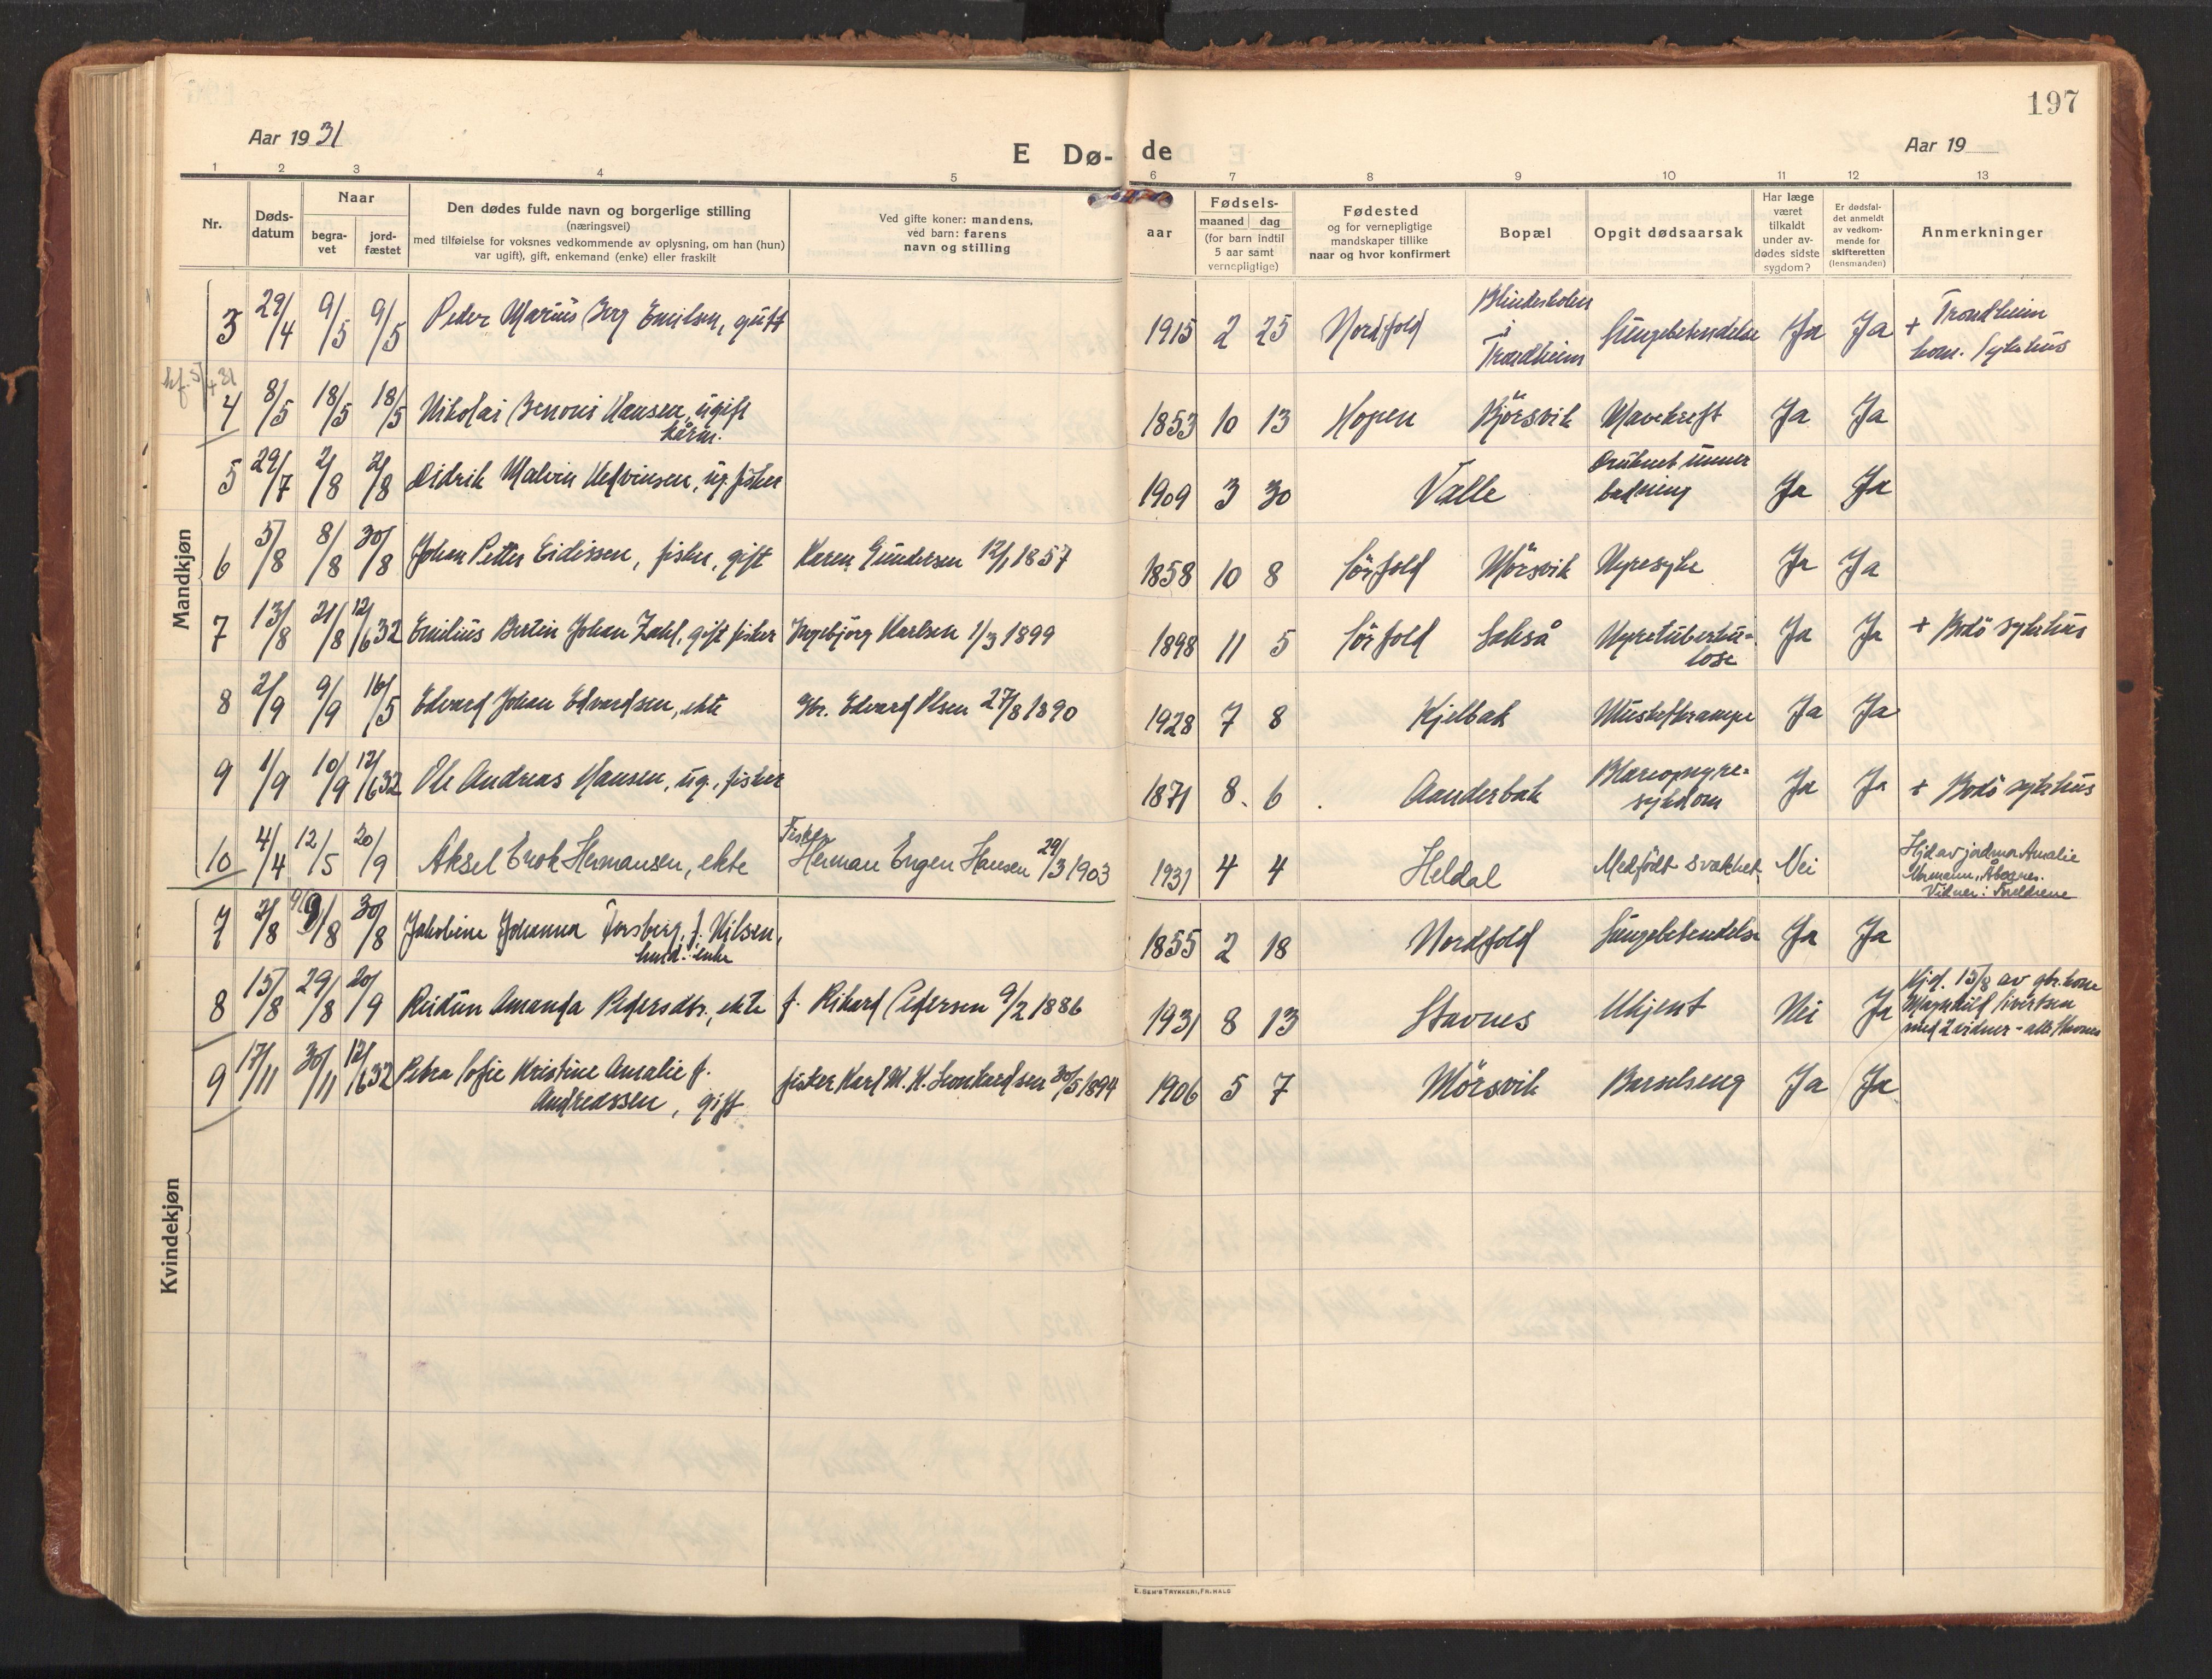 197
Aar 1931
E Dø- de
Aar 19
1 2 3 4 5 6 7 8 9 10 11 12 13
Nr.
Døds-
datum
Naar
begra-
vet
jord-
fæstet
Den dødes fulde navn og borgerlige stilling
(næringsvei)
med tilføielse for voksnes vedkommende av oplysning, om han (hun)
var ugift), gift, enkemand (enke) eller fraskilt
Ved gifte koner: mandens,
ved barn: farens
navn og stilling
Fødsels-
aar
maaned dag
(for barn indtil
5 aar samt
vernepligtige)
Fødested
og for vernepligtige
mandskaper tillike
naar og hvor konfirmert
Bopæl
Opgit dødsaarsak
Har læge
været
tilkaldt
under av-
dødes sidste
sygdom?
Er dødsfal-
det anmeldt
av vedkom-
mende for
skifteretten
(lensmanden)
Anmerkninger
Mandkjøn
3 29/4 9/5 9/5 Peder Marius Berg Emilsen, gutt 1915 2 25 Nordfold Blindeskolen
i
Trondheim
Lungebetendelse Ja Ja + Trondheim
kom. sykehus
4 8/5 18/5 18/5 Nikolai Benoni Hansen, ugift
kårm.
1853 10 13 Hopen Kjörsvik Mavekreft Ja Ja
5 29/7 2/8 2/8 Didrik Malvin Hedvinsen, ug. fisker 1909 3 30 Valle Druknet under
badning Ja Ja
6 5/8 8/8 30/8 Johan Petter Eidissen, fisker, gift Karen Gundersen 12/1 1857 1858 10 8 Sörfold Mörsvik Nyresyke Ja Ja
7 13/8 21/8 12/6 32 Emilius Bertin Johan Zahl, gift fisker Ingebjörg Karlsen 1/3 1899 1898 11 5 Sörfold Sakså Nyretuberku-
lose
Ja Ja + Bodö sykehus
8 2/9 9/9 16/5 Edvard Johan Edvardsen, ekte Gbr. Edvard Olsen 27/8 1890 1928 7 8 Kjelbak Muskelkrampe Ja Ja
9 1/9 10/9 12/6 32 Ole Andreas Hansen, ug., fisker 1871 8 6 Aanderbak Blæreognyre-
sykdom
Ja Ja + Bodö sykehus
10 4/4 12/5 20/9 Aksel Enok Hermansen, ekte Fisker
Herman Engen Hansen 29/3 1903 1931 4 4 Heldal Medfödt svakhet Nei Hjd av jordmor Amalie
Vidner: Foreldrene
Kvindekjøn
7 2/8 9/8 30/8 Jakobine Johanna Forsberg, f. Nilsen,
enke
1855 2 18 Nordfold Lungebetendelse Ja Ja
8 15/8 29/8 20/9 Reidun Amanda Pedersdtr., ekte f. Rikard Pedersen 9/2 1886 1931 8 13 Stavnes Ukjent Nei Ja Hjd. 15/8 av gbr.kone
Magnhild Sivertsen
med 2 vidner - alle Stavnes
9 17/11 30/11 12/6 32 Petra Sofie Kristine Amalie f.
Andreassen, gift
fisker Karl M. K. Leonhardsen 30/5 1894 1906 5 7 Mörsvik Barselseng Ja Ja
E. SEM'S TRYKKERI, FR.HALD